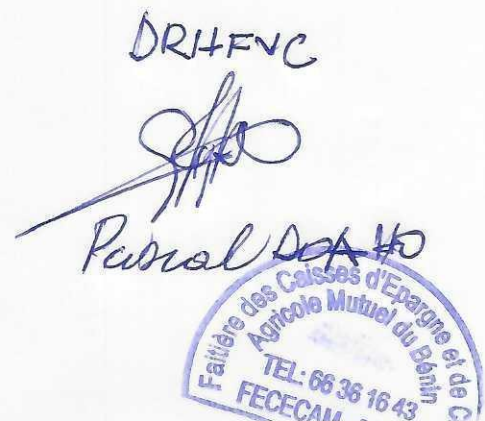 DRHFVC
Pascal
Faitière des Caisses d'Epargne et de C
Agricole Mutuel du Bénin
TEL: 66 36 16 43
FECECAM